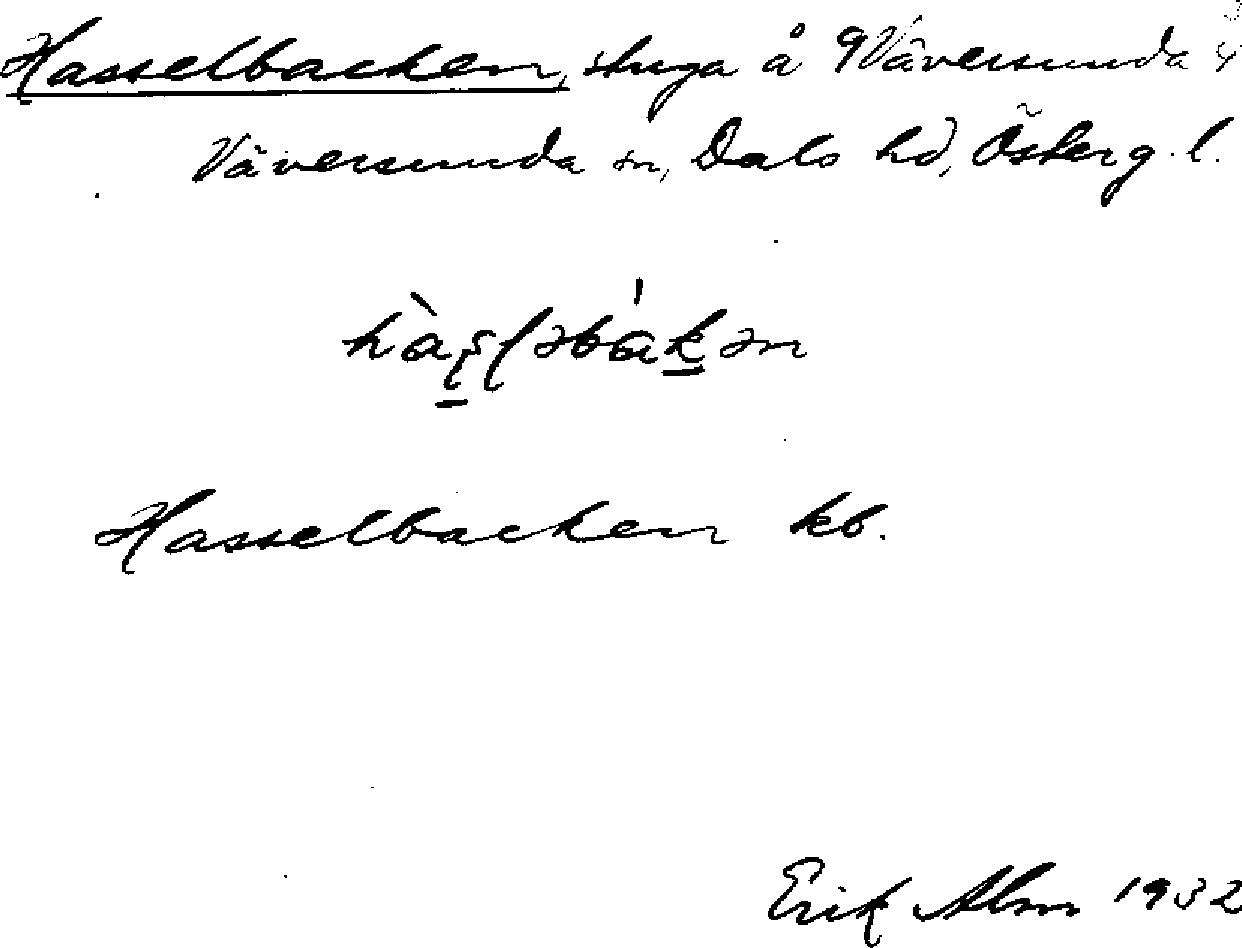 Hasselbacken, stuga å Väversunda 4
Väversunda sn, Dals hd, Österg. l.
Hasselbacken kb.
Erik Alm 1932